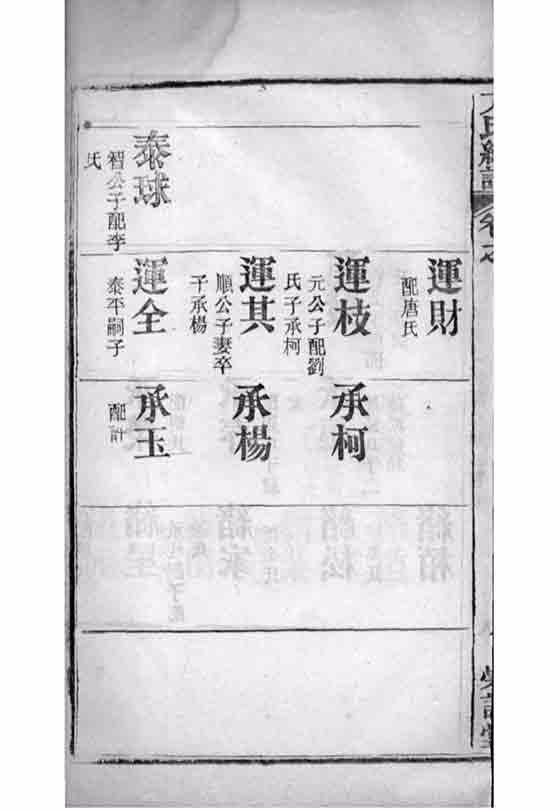 運財
配唐氏
運枝
元公子配劉
氏子承柯
運其
順公子妻卒
子承楊
泰球
智公子配李
氏
運全
泰平嗣子
承柯
承楊
承玉
配許